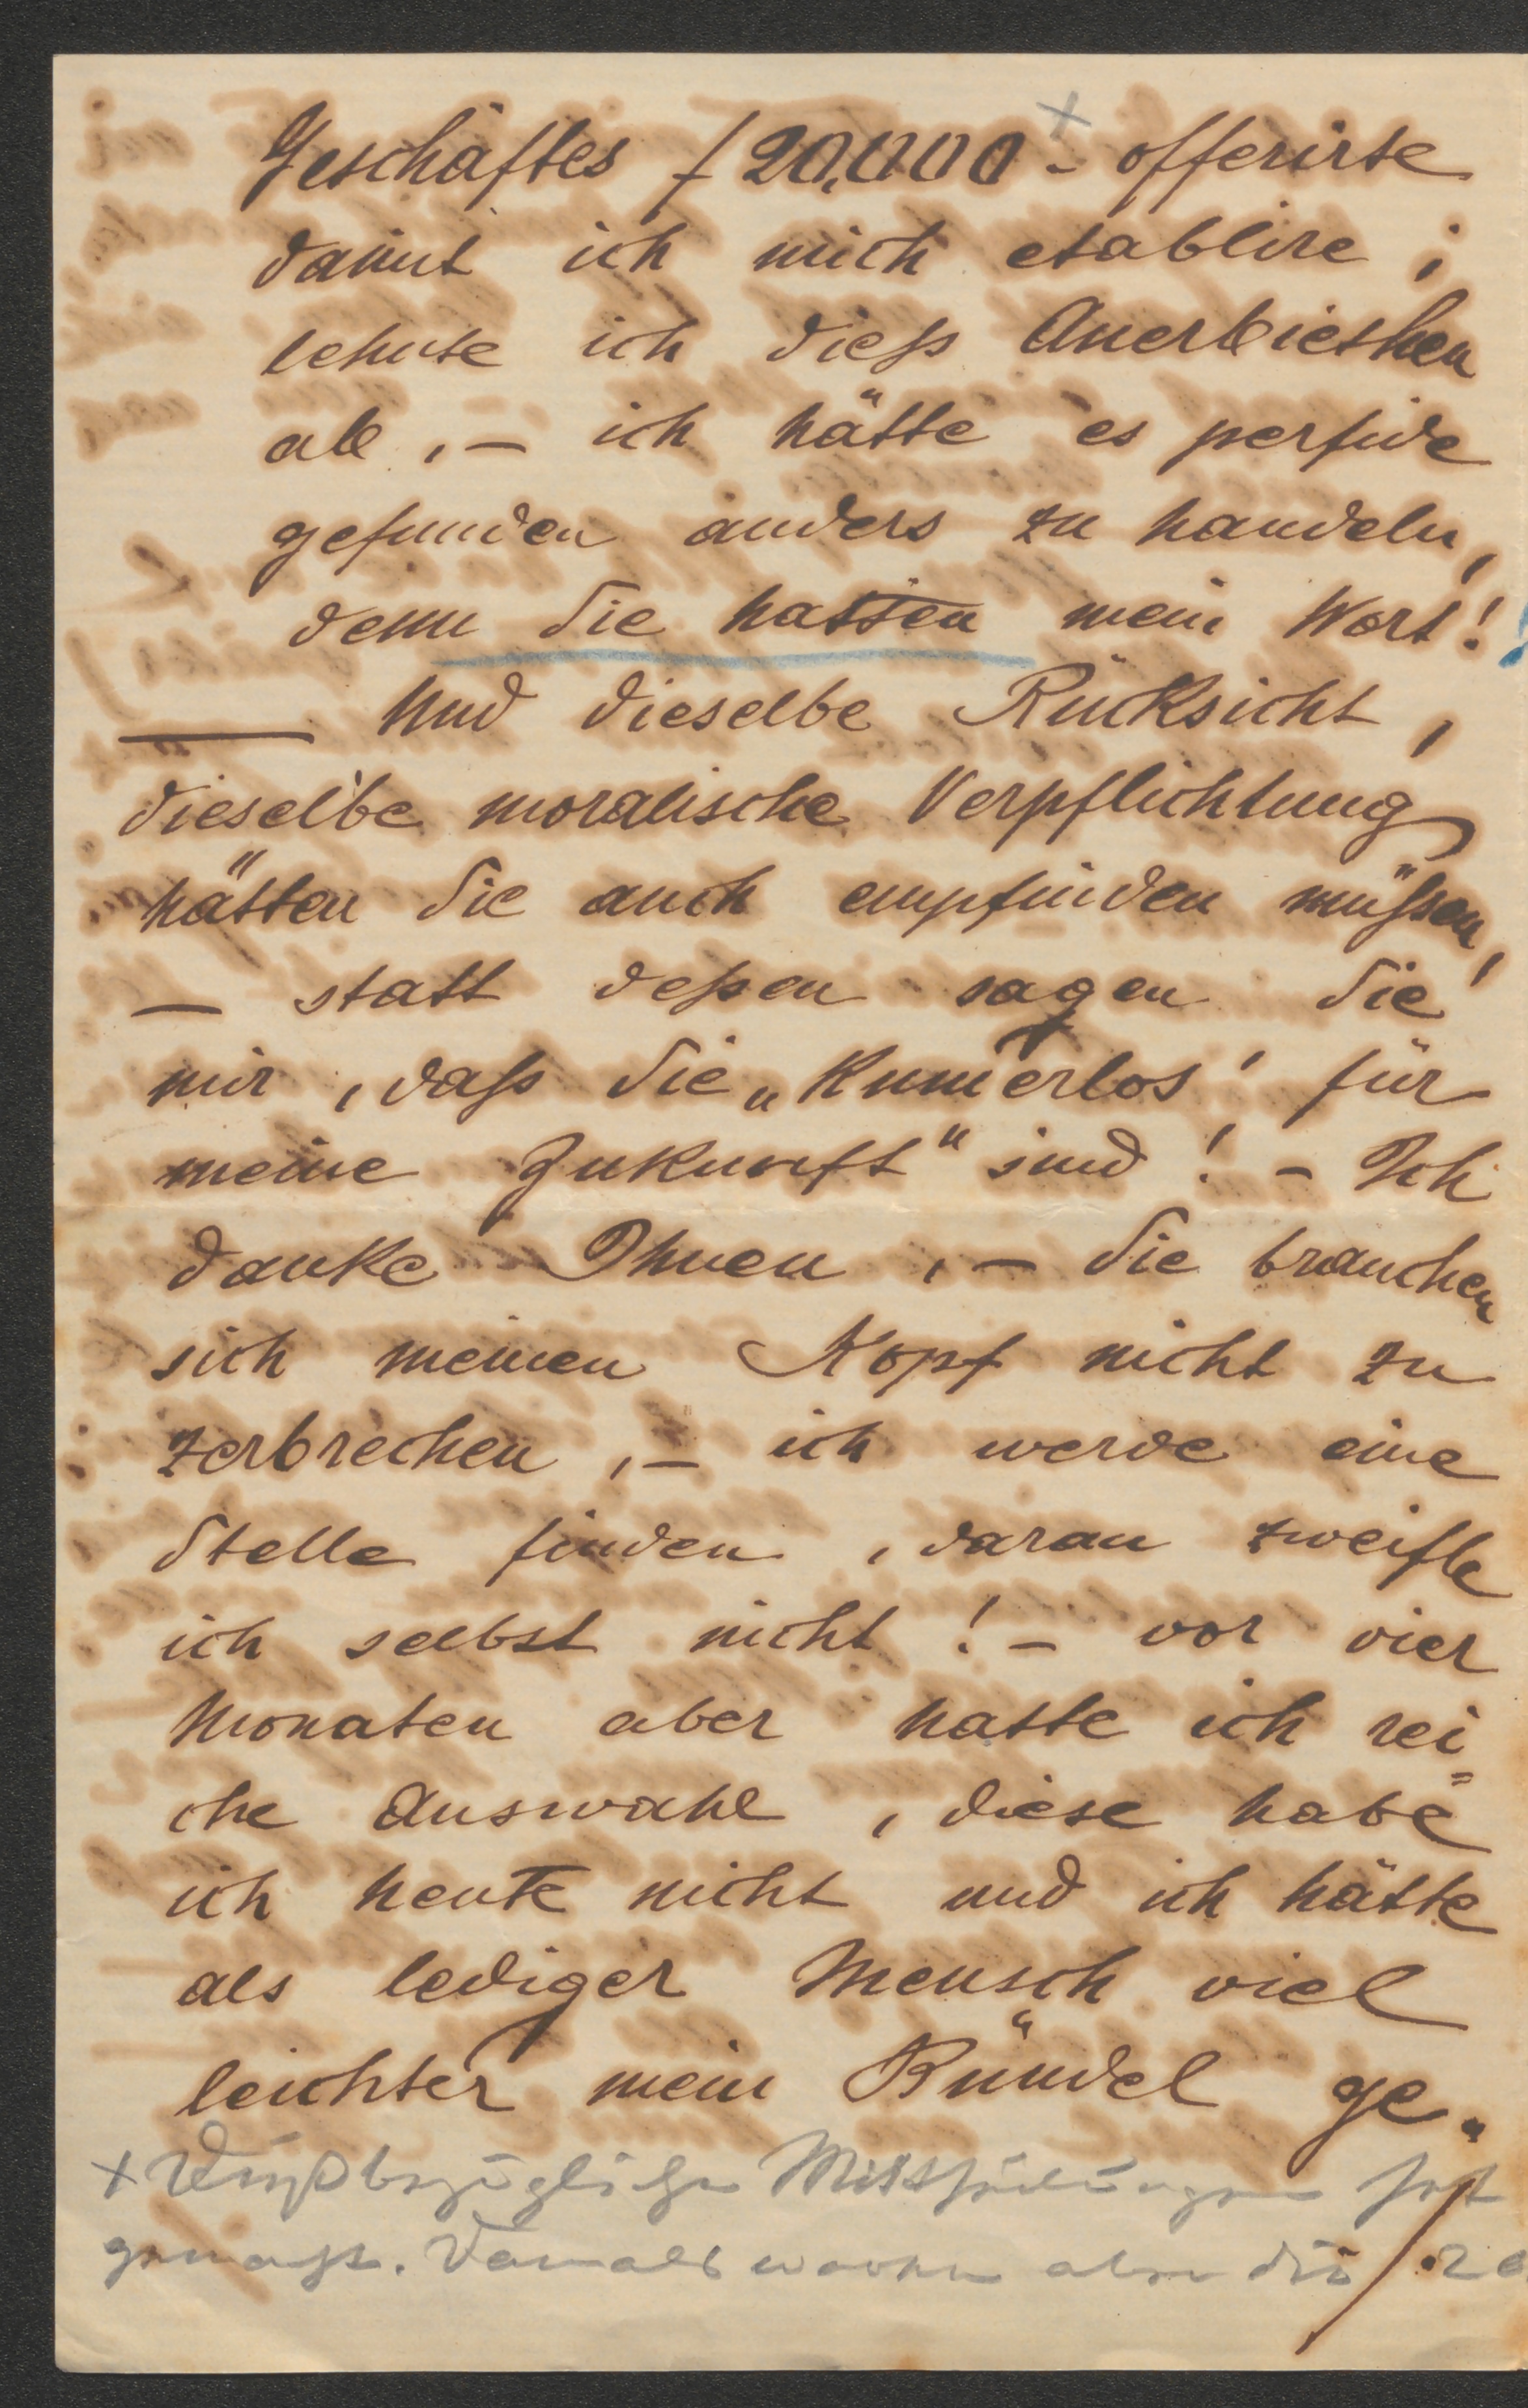 Geschäftes f 20,000 x - offerirte
damit ich mich etablire ;
lehnte ich dieß Anerbiethen
ab , – ich hätte es perfide
gefunden anders zu handeln,
denn Sie hatten mein Wort!
— Und dieselbe Rücksicht,
dieselbe moralische Verpflichtung
hätten Sie auch empfinden müßen,
– statt deßen sagen Sie
mir , daß Sie „Kum̄erlos' für
meine Zukunft" sind ! – Ich
danke Ihnen , – Sie brauchen
sich meinen Kopf nicht zu
zerbrechen , – ich werde eine
Stelle finden , daran zweifle
ich selbst nicht ! – vor vier
Monaten aber hatte ich rei=
che Auswahl , diese habe
ich heute nicht und ich hätte
als lediger Mensch viel
leichter mein Bündel ge„
x Dießbezügliche Mittheilungen hat
gemacht. Damals waren aber die